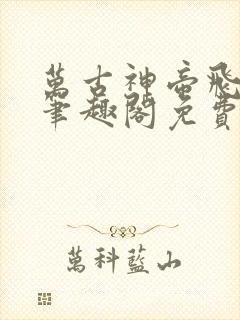 萬古神帝飛
筆趣閣免費
萬科藍山